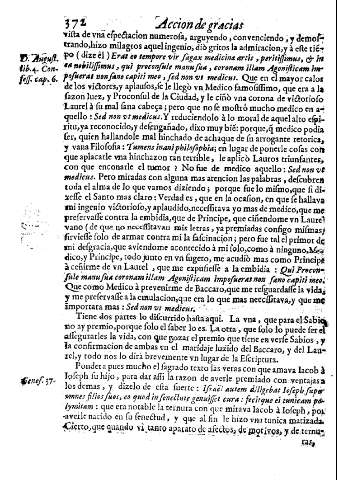 372 Accion de gracias
vista de vna espectacion numerosa, arguyendo, conveniendo, y demos-
trando, hizo milagros aquel ingenio, dió gritos la admiracion, y á este tiē-
D. August. po (dize él) Erat eo tempore vir sagax medicinæ artis, peritissimus, & in
lib. 4. Con- ea nobilissimus, qui proconsule manu sua, coronam illam Agonisticam im-
fess. cap. 6. posuerat non sano capiti meo, sed non vt medicus. Que en el mayor calor
de los victores, y aplausos, se le llegò vn Medico famosissimo, que era a la
sazon luez, y Proconsul de la Ciudad, y le ciñò vna corona de victorioso
Laurel à su mal sana cabeça; pero que no se mostrò mucho medico en a-
quello: Sed non vt medicus. Y reduciendolo à lo moral de aquel alto espi-
ritu, ya reconocido, y desengañado, dixo muy bié: porque, q̃ medico podia
ser, quien hallandole mal hinchado de achaque de su arrogante retorica,
y vana Filosofia: Tumens inani philosophia; en lugar de ponerle cosas con
que aplacarle vna hinchazon tan terrible, le aplicò Lauros triunfantes,
con que enconarle el tumor? No fue de medico aquello: Sed non vt
medicus. Pero miradas con alguna mas atencion las palabras, descubren
toda el alma de lo que vamos diziendo; porque fue lo mismo, que si di-
xesse el Santo mas claro: Verdad es, que en la ocasion, en que se hallava
mi ingenio victorioso, y aplaudido, necessitava yo mas de medico, que me
preservasse contra la embidia, que de Principe, que ciñendome vn Laurel
vano (de que no necessitavan mis letras, ya premiadas consigo mismas)
sirviesse solo de armar contra mi la fascinacion; pero fue tal el primor de
mi desgracia, que aviendome acontecido à mi solo, como à ninguno, Me-
dico, y Principe, todo junto en vn sugeto, me acudiò mas como Principe
à ceñirme de vn Laurel, que me expusiesse a la embidia: Qui Procon-
sule manu sua coronam illam Agonisticam imposuerat non sano capiti meo.
Que como Medico à prevenirme de Baccaro, que me resguardasse la vida,
y me preservasse a la emulacion, que era lo que mas necessitava, y que me
importara mas: Sed non vt medicus.
Tiene dos partes lo discurrido hasta aqui. La vna, que para el Sabio
no ay premio, porque solo el saber lo es. La otra, que solo lo puede ser el
assegurarles la vida, con que gozar el premio que tiene en verse Sabios, y
la confirmacion de ambas en el maridaje lucido del Baccaro, y del Lau-
rel, y todo nos lo dirà brevemente vn lugar de la Escriptura.
Pondera pues mucho el sagrado texto las veras con que amava Iacob à
Genes. 37. Ioseph su hijo, para dar assi la razon de averle premiado con ventajas a
los demas, y dizelo de esta suerte: Israel autem diligebat Ioseph super
omnes filios suos, eo quod in senectute genuisset eum: fecitque ei tunicam po-
lymitam: que era notable la ternura con que mirava Iacob à Ioseph, por
averle nacido en su senectud, y que al fin le hizo vna tunica matizada.
Cierto, que quando vi tanto aparato de afectos, de motivos, y de ternu-
ras,